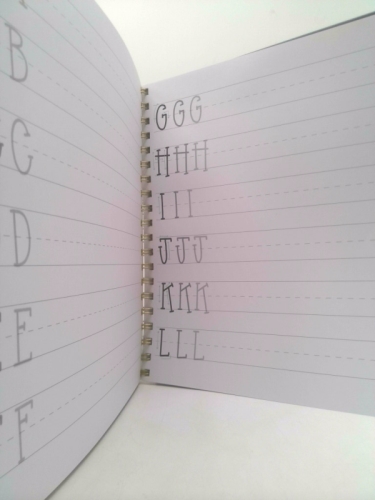 B
C
D
E
F
G G G
H H H
I I I
J J J
K K K
L L L